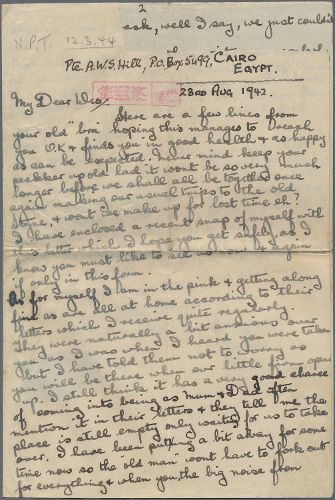 2
ask, well I say, we just could'n
N.P.T. 12.3.44
Pte. A.W.S. Hill, P.O. Box 5499, CAIRO
EGYPT.
23RD AUG 1942.
My Dear
Here are a few lines from
your old "bro" hoping this manages to reach
you OK & finds you in good health & as happy
as can be expected. Never mind keep your
pecker up old lad it wont be so very much
longer before we shall all be together once
again making our usual trips to the old
& wont we make up for lost time eh?
I have enclosed a recent snap of myself with
this letter which I hope you get safely as I
know you must like to see us now & again
if only in this form.
As for myself I am in the pink & getting along
fine as are all at home according to their
letters which I receive quite regularly.
They were naturally a bit anxious over
you as I was when I heard you were taken
but I have told them not to worry as
you will be there when our little firm opens
up. I still think it has a very good chance
of coming into being as Mum & Dad often
mention it in their letters & they tell me the
place is still empty only waiting for us to take
over. I have been putting a bit away for some
time now so the old man wont have to fork out
for everything & when you the big noise from